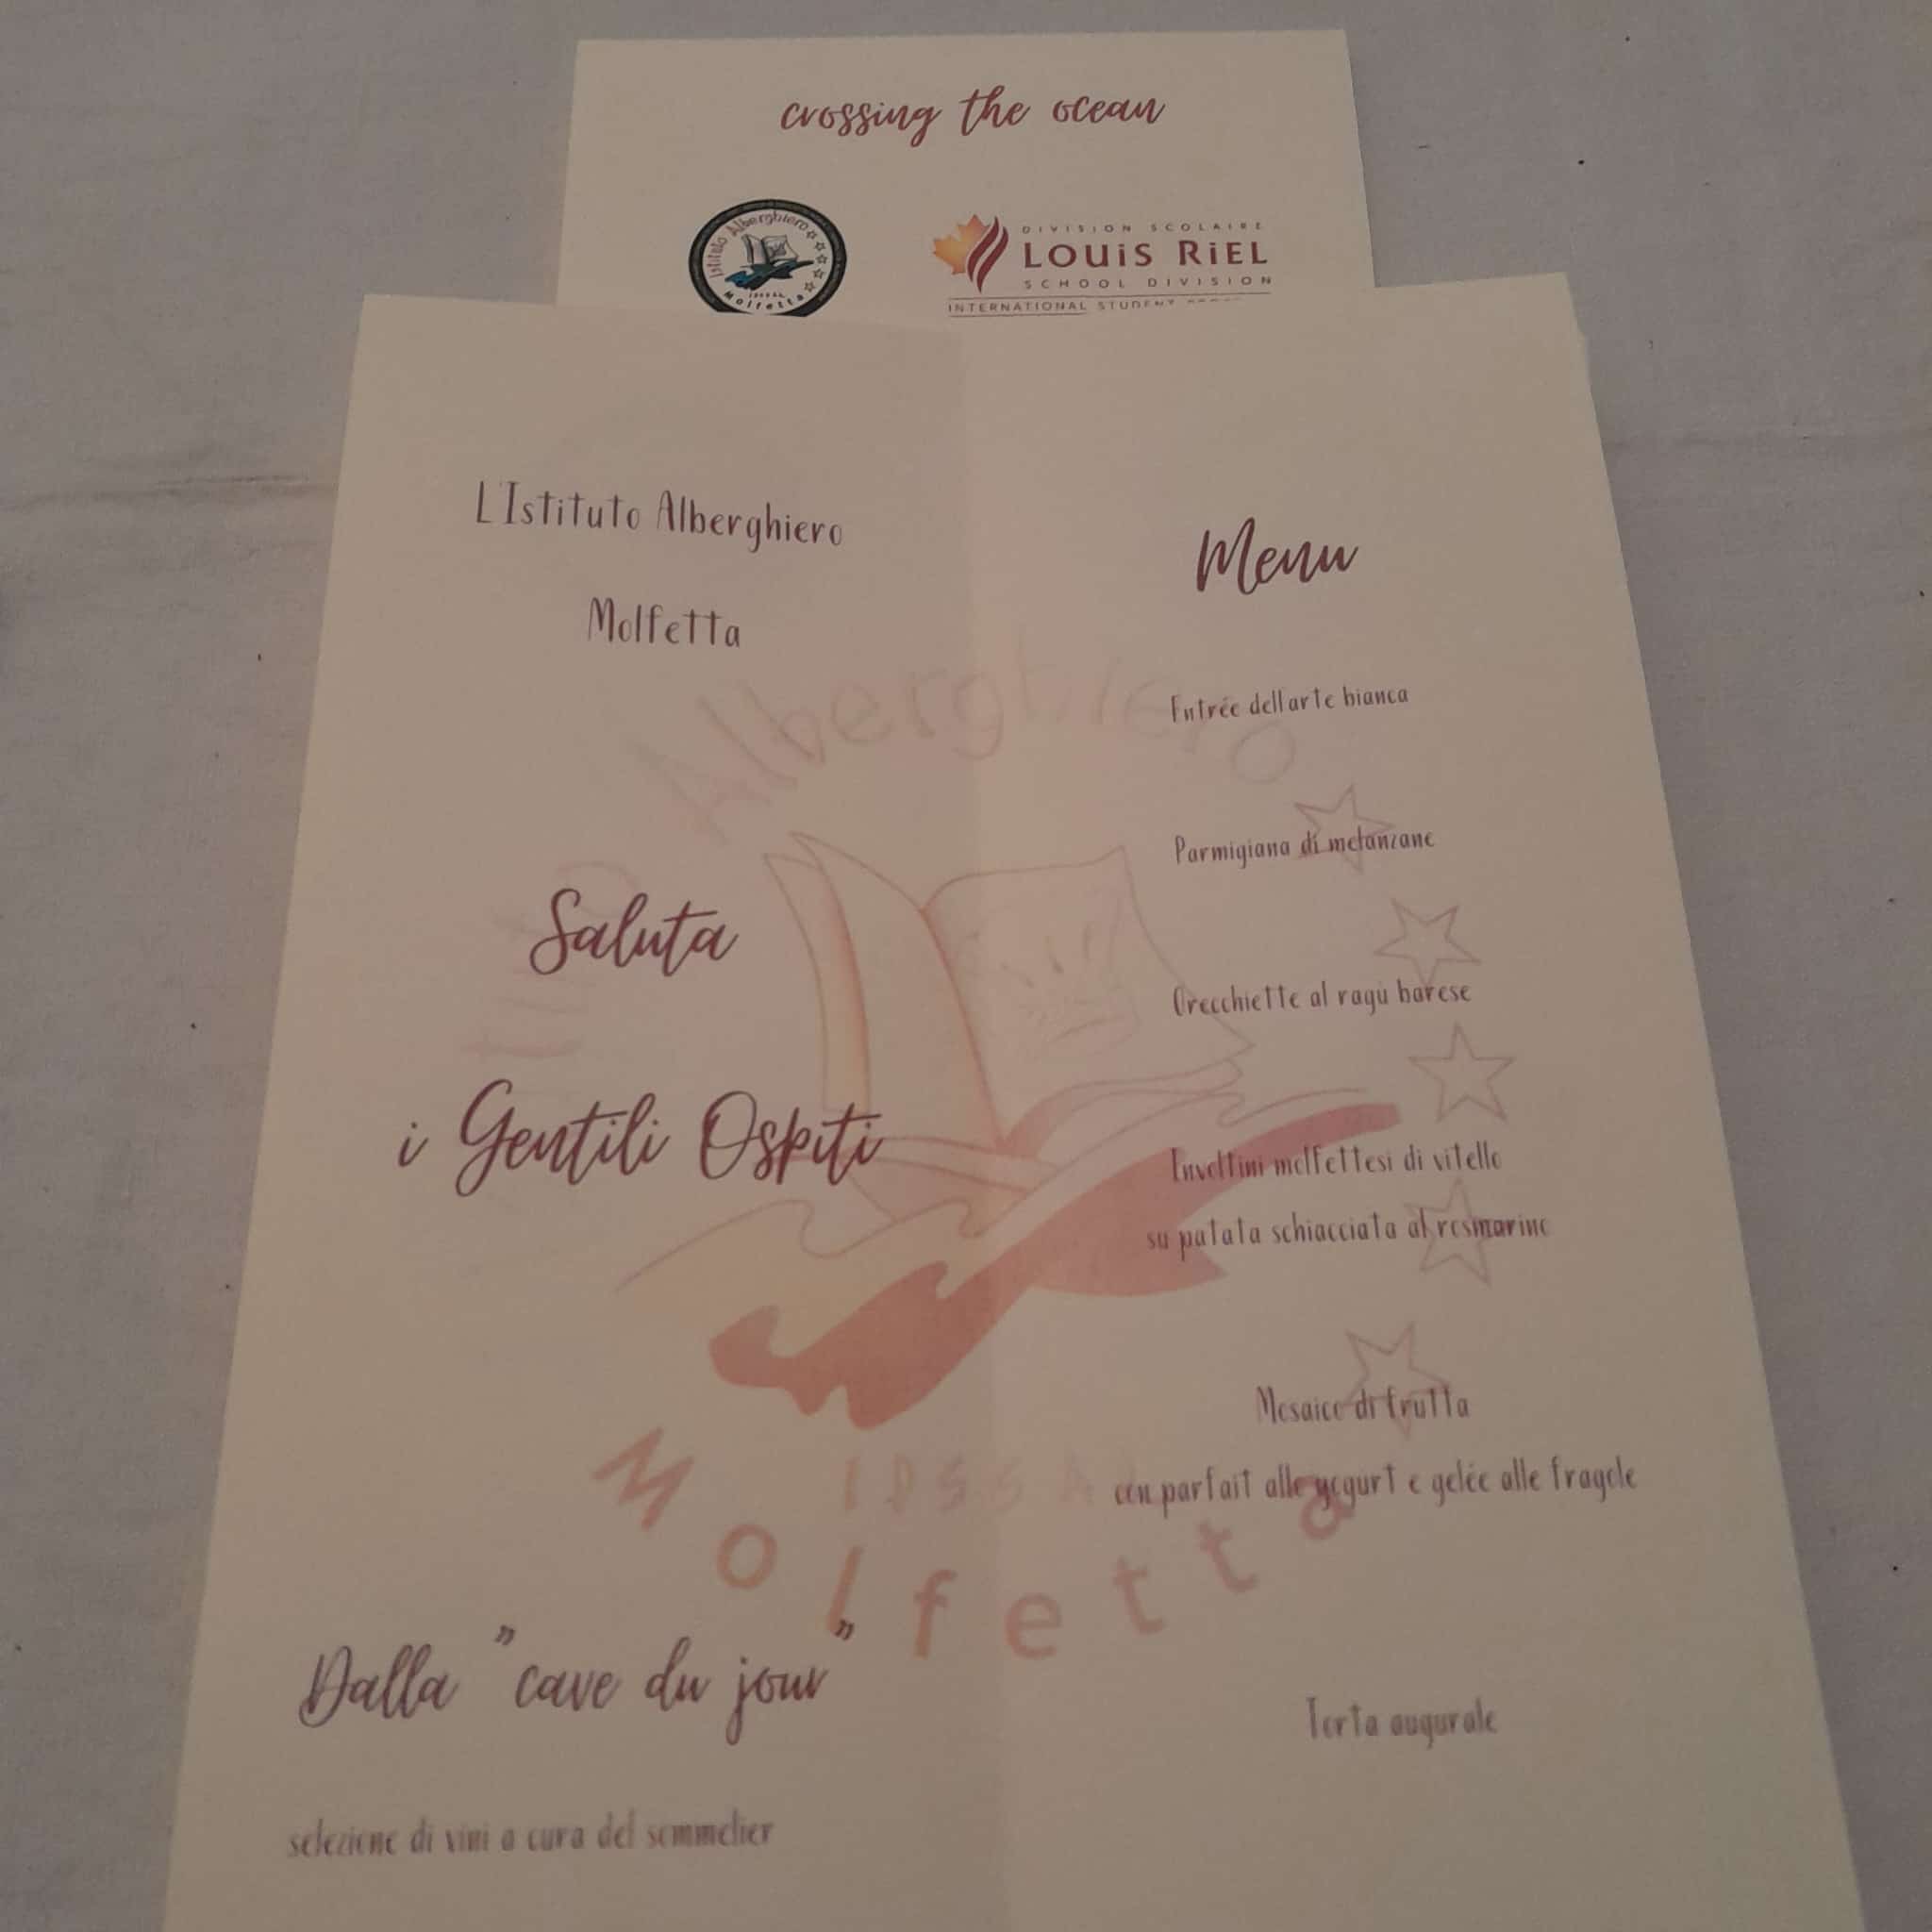 crossing the ocean
Istituto Alberghiero
Molfetta
DIVISION SCOLAIRE
LOUiS RiEL
SCHOOL DIVISION
INTERNATIONAL STUDENT
L'Istituto Alberghiero
Molfetta
Saluta
i Gentili Ospiti
Dalla "cave du jour"
selezione di vini a cura del sommelier
Menu
Entrée dell'arte bianca
Parmigiana di melanzane
Orecchiette al ragù barese
Involtini molfettesi di vitello
su patata schiacciata al rosmarino
Mosaico di frutta
con parfait allo yogurt e gelée alle fragole
Torta augurale
Alberghiero
IPSSA
Molfetta